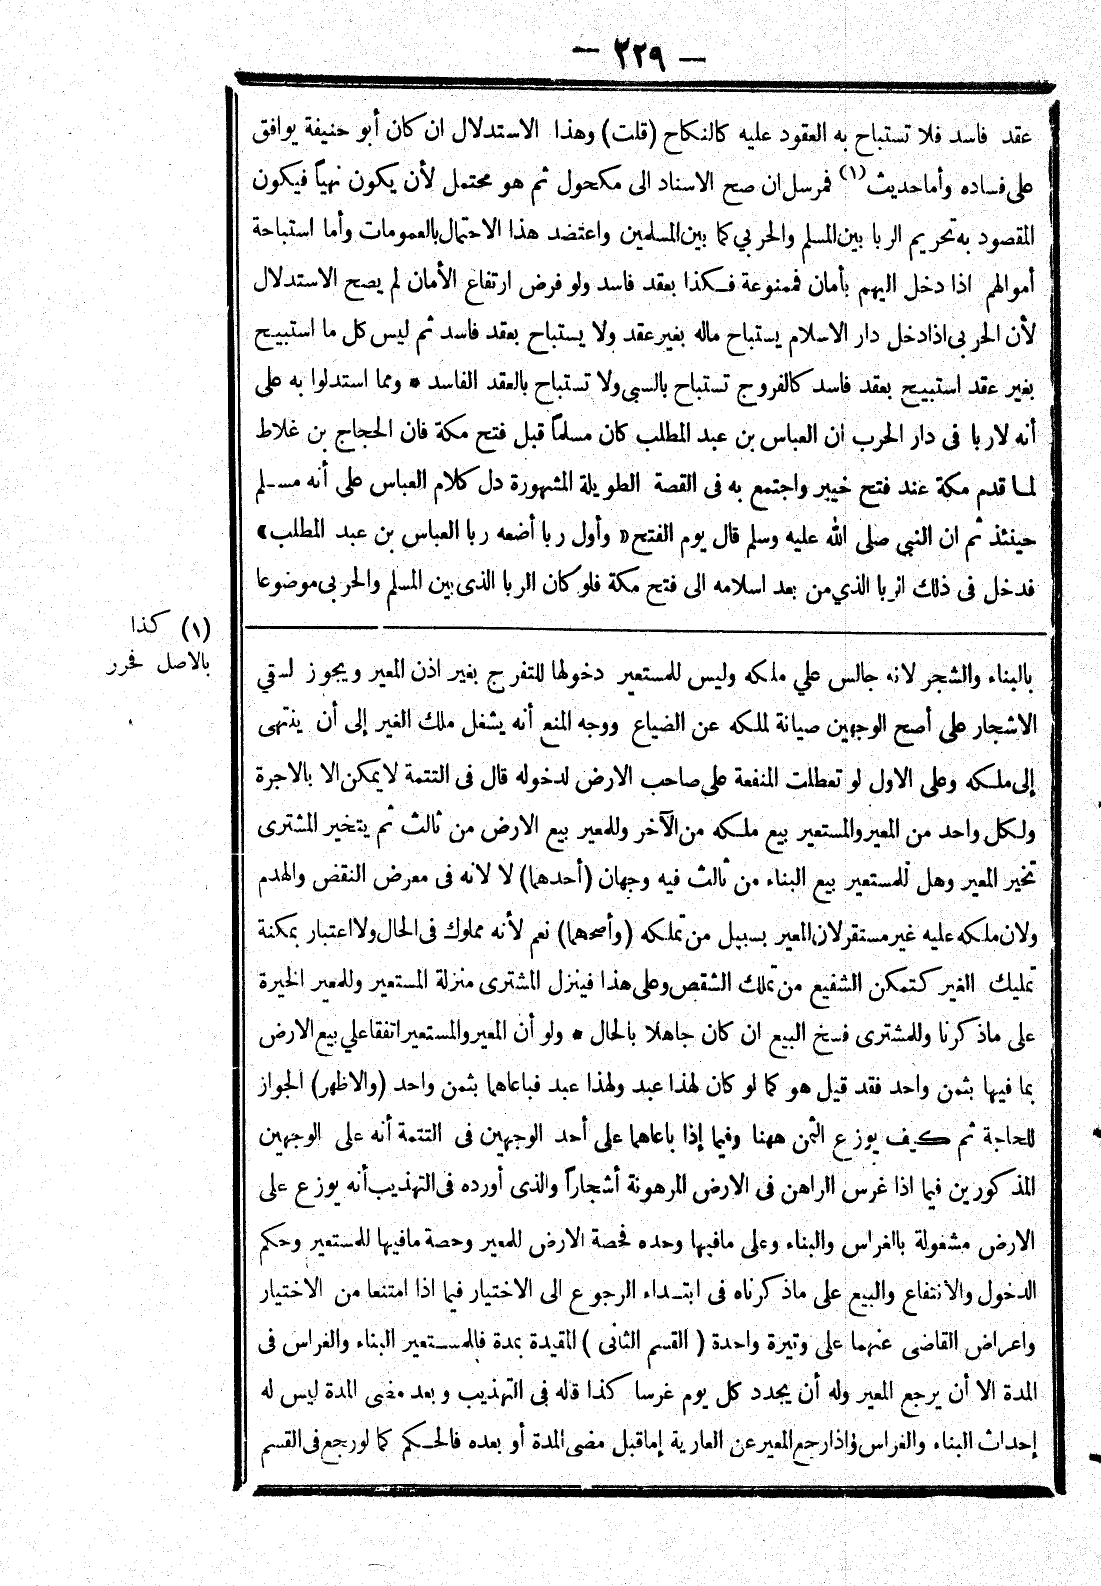 — ٢٢٩ —
عقد فاسد فلا تستباح به العقود عليه كالنكاح (قلت) وهذا الاستدلال ان كان أبو حنيفة يوافق
على فساده وأما حديث (١) فمرسل ان صح الاسناد الى مكحول ثم هو محتمل لأن يكون نهياً فيكون
المقصود به تحريم الربا بين المسلم والحربي كما بين المسلمين واعتضد هذا الاحتمال بالعمومات وأما استباحة
أموالهم اذا دخل اليهم بأمان فممنوعة فكذا بعقد فاسد ولو فرض ارتفاع الأمان لم يصح الاستدلال
لأن الحربى اذا دخل دار الاسلام يستباح ماله بغير عقد ولا يستباح بعقد فاسد ثم ليس كل ما استبيح
بغير عقد استبيح بعقد فاسد كالفروج تستباح بالسبى ولا تستباح بالعقد الفاسد * ومما استدلوا به على
أنه لا ربا فى دار الحرب ان العباس بن عبد المطلب كان مسلماً قبل فتح مكة فان الحجاج بن غلاط
لما قدم مكة عند فتح خيبر واجتمع به فى القصة الطويلة المشهورة دل كلام العباس على أنه مسلم
حينئذ ثم ان النبي صلى الله عليه وسلم قال يوم الفتح « وأول ربا أضعه ربا العباس بن عبد المطلب »
فدخل فى ذلك الربا الذي من بعد اسلامه الى فتح مكة فلو كان الربا الذى بين المسلم والحربى موضوعا
(١) كذا
بالاصل فحرر
بالبناء والشجر لانه جالس علي ملكه وليس للمستعير دخولها للتفرج بغير اذن المعير ويجوز لسقي
الاشجار على أصح الوجهين صيانة لملكه عن الضياع ووجه المنع أنه يشغل ملك الغير إلى أن ينتهى
إلى ملكه وعلى الاول لو تعطلت المنفعة على صاحب الارض لدخوله قال فى التتمة لا يمكن الا بالاجرة
ولكل واحد من المعير والمستعير بيع ملكه من الآخر وللمعير بيع الارض من ثالث ثم يتخير المشترى
تخير المعير وهل للمستعير بيع البناء من ثالث فيه وجهان (أحدهما) لا لانه فى معرض النقض والهدم
ولان ملكه عليه غير مستقر لان المعير بسبيل من تملكه (وأصحهما) نعم لأنه مملوك فى الحال ولا اعتبار بمكنة
تمليك الغير كتمكن الشفيع من تملك الشقص وعلى هذا فينزل المشترى منزلة المستعير وللمعير الخيرة
على ما ذكرنا وللمشترى فسخ البيع ان كان جاهلا بالحال * ولو أن المعير والمستعير اتفقا علي بيع الارض
بما فيها بثمن واحد فقد قيل هو كما لو كان لهذا عبد ولهذا عبد فباعاهما بثمن واحد (والاظهر) الجواز
للحاجة ثم كيف يوزع الثمن ههنا وفيما إذا باعاهما على أحد الوجهين فى التتمة أنه على الوجهين
المذكورين فيما اذا غرس الراهن فى الارض المرهونة أشجاراً والذى أورده فى التهذيب أنه يوزع على
الارض مشغولة بالغراس والبناء وعلى مافيها وحده فحصة الارض للمعير وحصة مافيها للمستعير وحكم
الدخول والانتفاع والبيع على ما ذكرناه فى ابتداء الرجوع الى الاختيار فيما اذا امتنعا من الاختيار
واعراض القاضى عنهما على وتيرة واحدة ( القسم الثانى ) المقيدة بمدة فللمستعير البناء والغراس فى
المدة الا أن يرجع المعير وله أن يجدد كل يوم غرسا كذا قاله فى التهذيب وبعد مضى المدة ليس له
إحداث البناء والغراس واذا رجع المعير عن العارية إما قبل مضى المدة أو بعده فالحكم كما لو رجع فى القسم